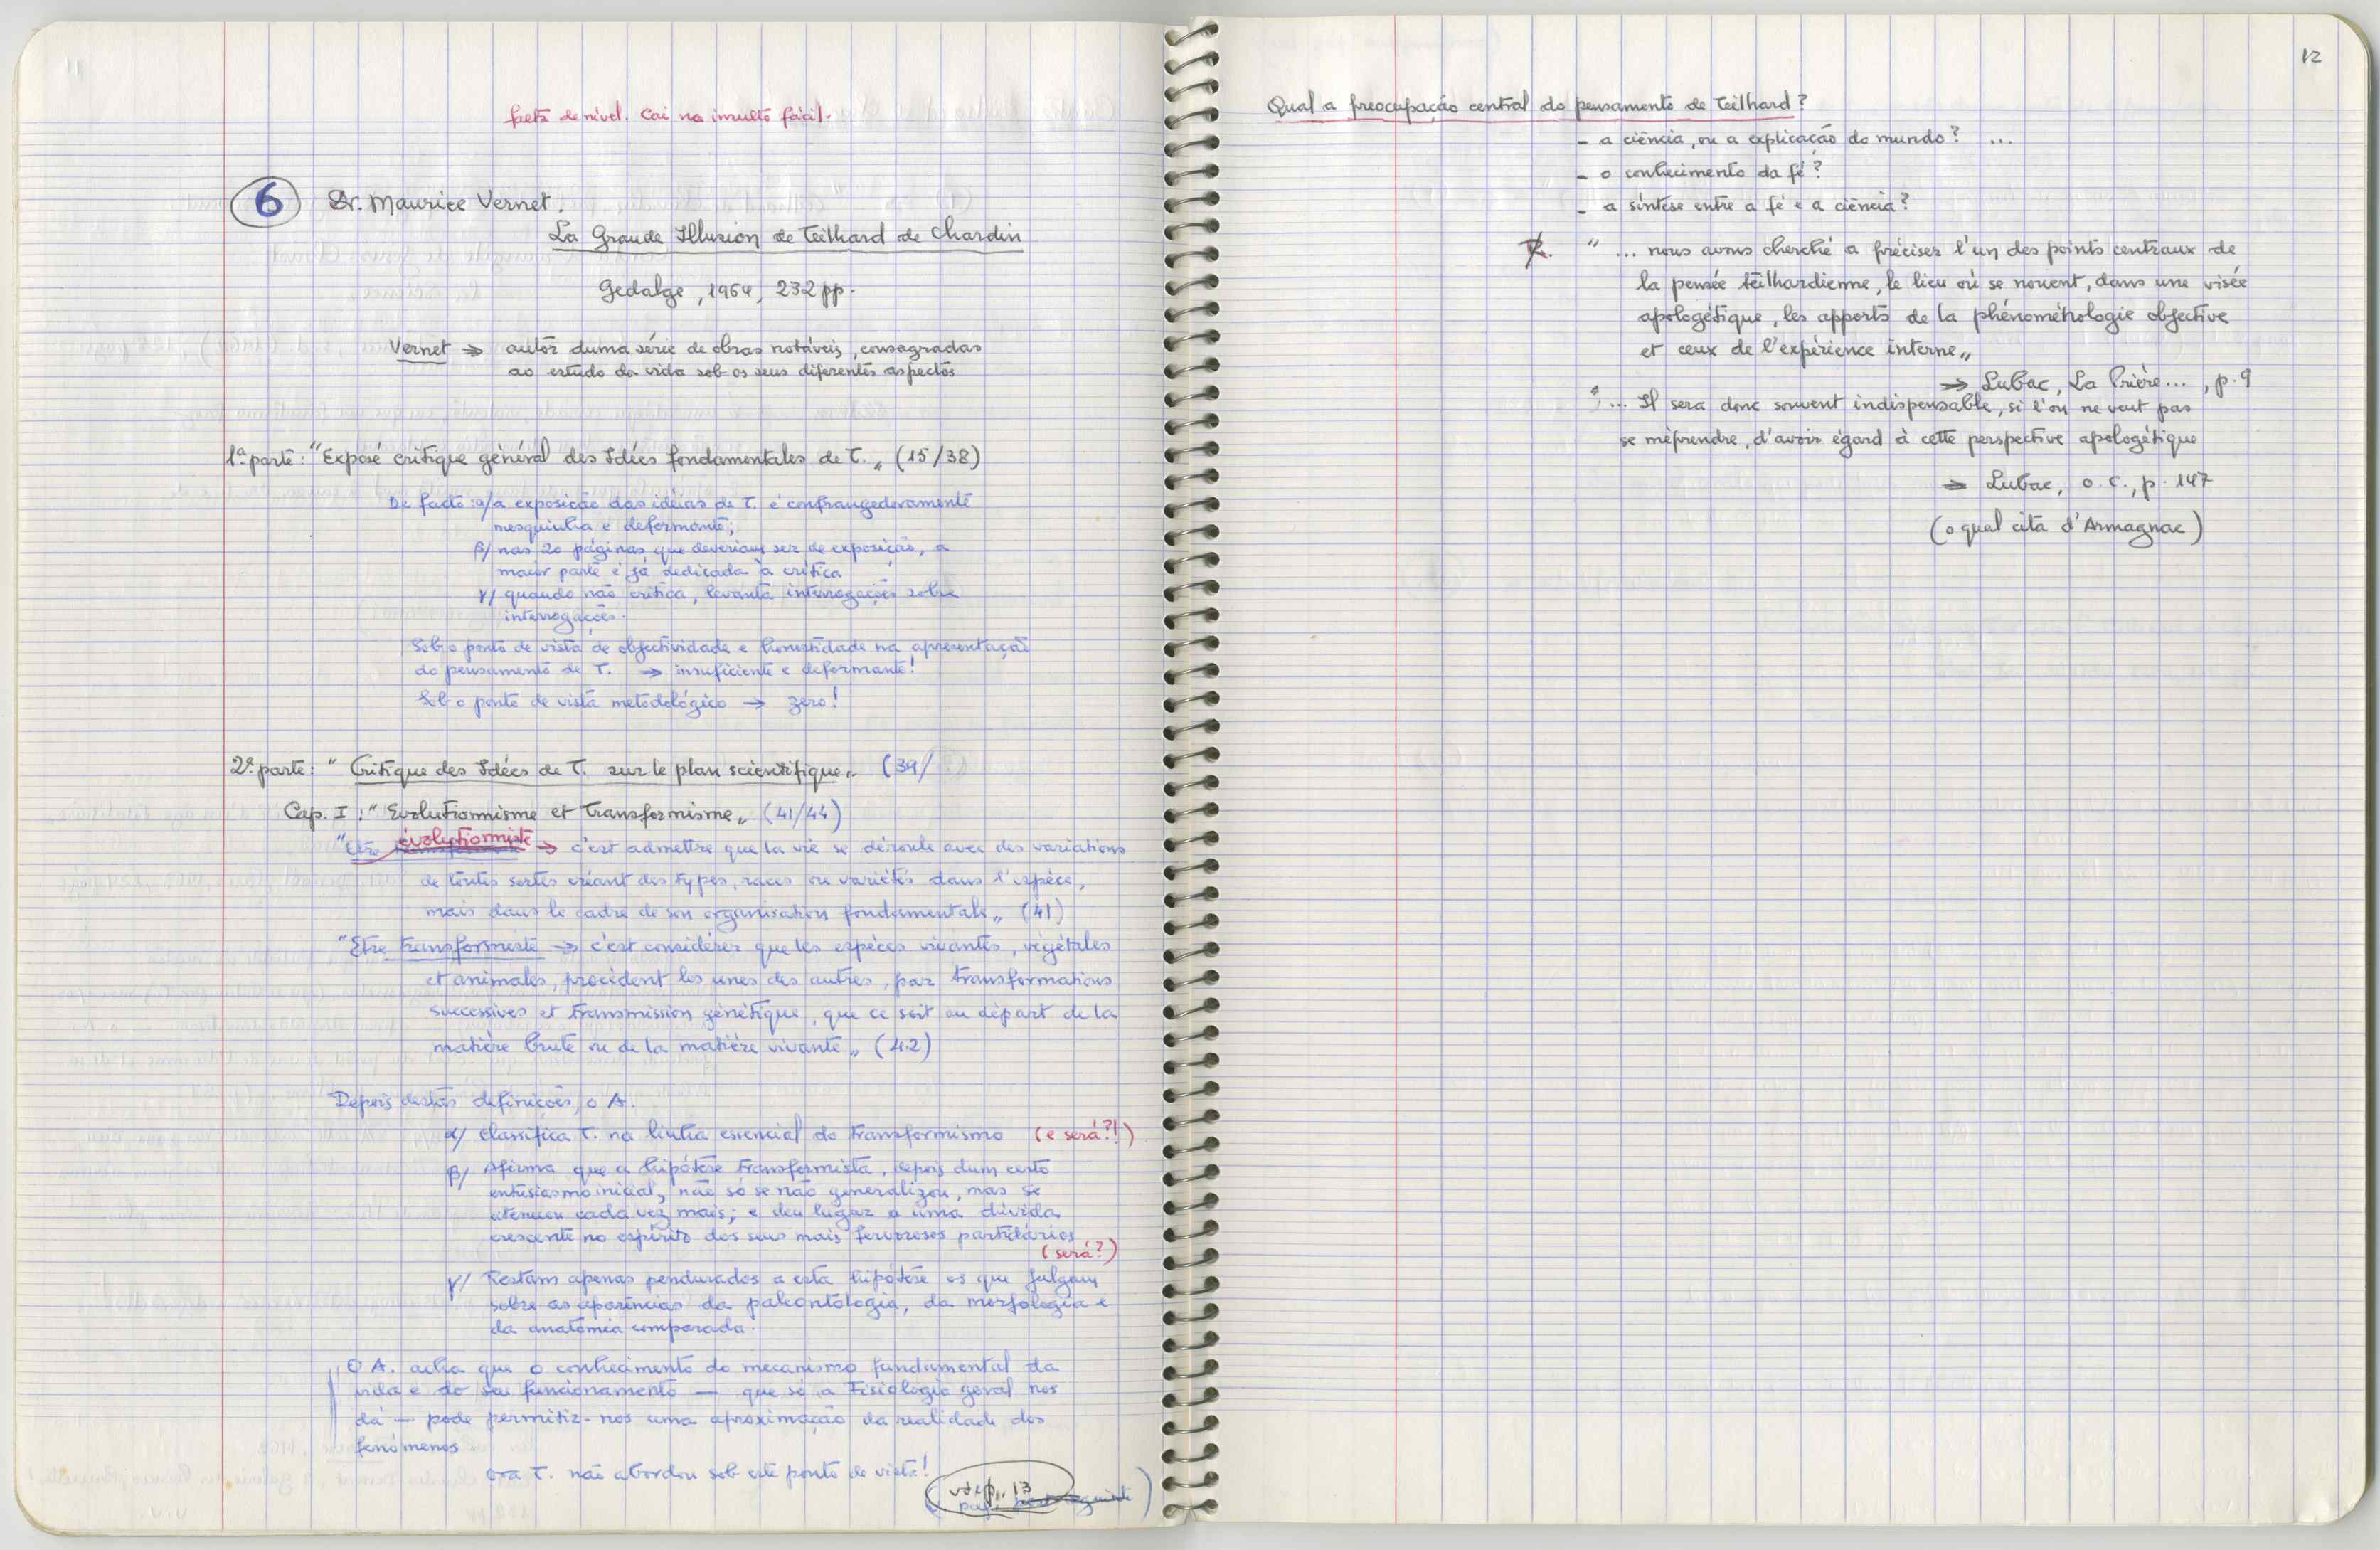 11
falta de nível. Cai no insulto fácil.
6 Dr. Maurice Vernet.
La Grande Illusion de Teilhard de Chardin
Gedalge, 1964, 232 pp.
Vernet → autor duma série de obras notáveis, consagradas
ao estudo da vida sob os seus diferentes aspectos
1ª parte: "Exposé critique général des Idées fondamentales de T. „ (15/38)
De facto: α/ a exposição das ideias de T. é confrangedoramente
mesquinha e deformante;
β/ nas 20 páginas que deveriam ser de exposição, a
maior parte é já dedicada à crítica
γ/ quando não critica, levanta interrogações sobre
interrogações.
Sob o ponto de vista de objectividade e honestidade na apresentação
do pensamento de T. → insuficiente e deformante!
Sob o ponto de vista metodológico → zero!
2ª parte: " Critique des Idées de T. sur le plan scientifique „ (39/
Cap. I : " Evolutionnisme et Transformisme „ (41/44)
évolutionniste
"Etre → c'est admettre que la vie se déroule avec des variations
de toutes sortes créant des types, races ou variétés dans l'espèce,
mais dans le cadre de son organisation fondamentale „ (41)
"Etre transformiste → c'est considérer que les espèces vivantes, végétales
et animales, procèdent les unes des autres, par transformations
successives et transmission génétique, que ce soit au départ de la
matière brute ou de la matière vivante „ (42)
Depois destas definições, o A.
α/ classifica T. na linha essencial do transformismo (e será?!)
β/ Afirma que a hipótese transformista, depois dum certo
entusiasmo inicial, não só se não generalizou, mas se
atenuou cada vez mais; e deu lugar a uma dúvida
crescente no espírito dos seus mais fervorosos partidários
(será?)
γ/ Restam apenas pendurados a esta hipótese os que julgam
sobre as aparências da paleontologia, da morfologia e
da anatomia comparada.
O A. acha que o conhecimento do mecanismo fundamental da
vida e do seu funcionamento — que só a Fisiologia geral nos
dá — pode permitir-nos uma aproximação da realidade dos
fenómenos
Ora T. não abordou sob este ponto de vista!
vd. p. 13
12
Qual a preocupação central do pensamento de Teilhard?
- a ciência, ou a explicação do mundo? ...
- o conhecimento da fé?
- a síntese entre a fé e a ciência?
R. " ... nous avons cherché a préciser l'un des points centraux de
la pensée teilhardienne, le lieu où se nouent, dans une visée
apologétique, les apports de la phénoménologie objective
et ceux de l'expérience interne „
→ Lubac, La Prière... , p. 9
" ... Il sera donc souvent indispensable, si l'on ne veut pas
se méprendre, d'avoir égard à cette perspective apologétique
→ Lubac, o. c., p. 147
(o qual cita d'Armagnac)